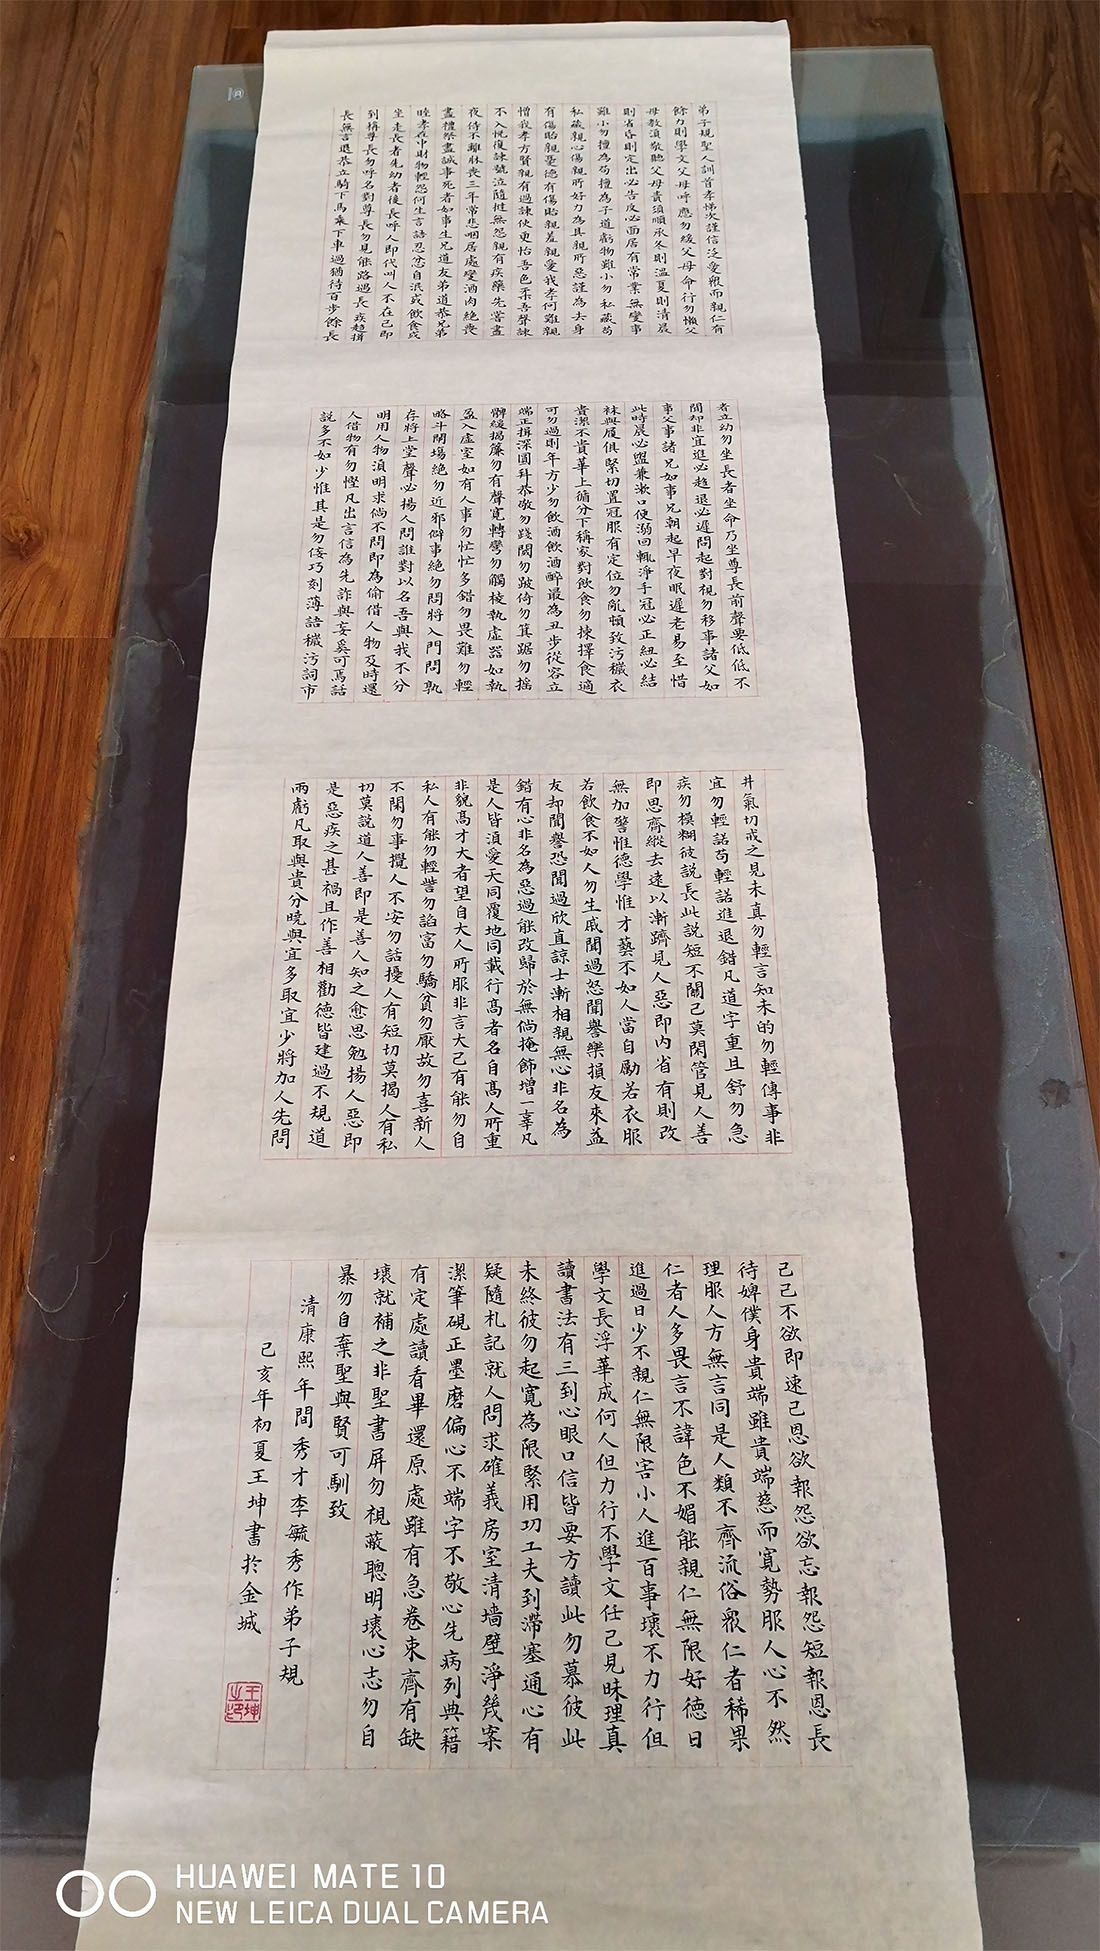 弟子規聖人訓首孝悌次謹信泛愛眾而親仁有
餘力則學文父母呼應勿緩父母命行勿懶父
母教須敬聽父母責須順承冬則溫夏則清晨
則省昏則定出必告反必面居有常業無變事
雖小勿擅為苟擅為子道虧物雖小勿私藏苟
私藏親心傷親所好力為具親所惡謹為去身
有傷貽親憂德有傷貽親羞親愛我孝何難親
憎我孝方賢親有過諫使更怡吾色柔吾聲諫
不入悅復諫號泣隨撻無怨親有疾藥先嘗晝
夜侍不離牀喪三年常悲咽居處變酒肉絕喪
盡禮祭盡誠事死者如事生兄道友弟道恭兄弟
睦孝在中財物輕怨何生言語忍忿自泯或飲食或
坐走長者先幼者後長呼人即代叫人不在己即
到稱尊長勿呼名對尊長勿見能路遇長疾趨揖
長無言退恭立騎下馬乘下車過猶待百步餘長
者立幼勿坐長者坐命乃坐尊長前聲要低低不
聞却非宜進必趨退必遲問起對視勿移事諸父如
事父事諸兄如事兄朝起早夜眠遲老易至惜
此時晨必盥兼漱口便溺回輒淨手冠必正紐必結
袜與履俱緊切置冠服有定位勿亂頓致污穢衣
貴潔不貴華上循分下稱家對飲食勿揀擇食適
可勿過則年方少勿飲酒飲酒醉最為丑步從容立
端正揖深圓拜恭敬勿踐閾勿跛倚勿箕踞勿搖
髀緩揭簾勿有聲寬轉彎勿觸棱執虛器如執
盈入虛室如有人事勿忙忙多錯勿畏難勿輕
略斗鬧場絕勿近邪僻事絕勿問將入門問孰
存將上堂聲必揚人問誰對以名吾與我不分
明用人物須明求倘不問即為偷借人物及時還
人借物有勿慳凡出言信為先詐與妄奚可焉話
說多不如少惟其是勿佞巧刻薄語穢污詞市
井氣切戒之見未真勿輕言知未的勿輕傳事非
宜勿輕諾苟輕諾進退錯凡道字重且舒勿急
疾勿模糊彼說長此說短不關己莫閑管見人善
即思齊縱去遠以漸躋見人惡即內省有則改
無加警惟德學惟才藝不如人當自勵若衣服
若飲食不如人勿生戚聞過怒聞譽樂損友來益
友却聞譽恐聞過欣直諒士漸相親無心非名為
錯有心非名為惡過能改歸於無倘掩飾增一辜凡
是人皆須愛天同覆地同載行高者名自高人所重
非貌高才大者望自大人所服非言大己有能勿自
私人有能勿輕訾勿諂富勿驕貧勿厭故勿喜新人
不閑勿事攪人不安勿話擾人有短切莫揭人有私
切莫說道人善即是善人知之愈思勉揚人惡即
是惡疾之甚禍且作善相勸德皆建過不規道
兩虧凡取與貴分曉與宜多取宜少將加人先問
己己不欲即速己恩欲報怨欲忘報怨短報恩長
待婢僕身貴端雖貴端慈而寬勢服人心不然
理服人方無言同是人類不齊流俗眾仁者稀果
仁者人多畏言不諱色不媚能親仁無限好德日
進過日少不親仁無限害小人進百事壞不力行但
學文長浮華成何人但力行不學文任己見昧理真
讀書法有三到心眼口信皆要方讀此勿慕彼此
未終彼勿起寬為限緊用功工夫到滯塞通心有
疑隨札記就人問求確義房室清墻壁淨幾案
潔筆硯正墨磨偏心不端字不敬心先病列典籍
有定處讀看畢還原處雖有急卷束齊有缺
壞就補之非聖書屏勿視蔽聰明壞心志勿自
暴勿自棄聖與賢可馴致
清康熙年間秀才李毓秀作弟子規
己亥年初夏王坤書於金城
王坤之印
HUAWEI MATE 10
NEW LEICA DUAL CAMERA